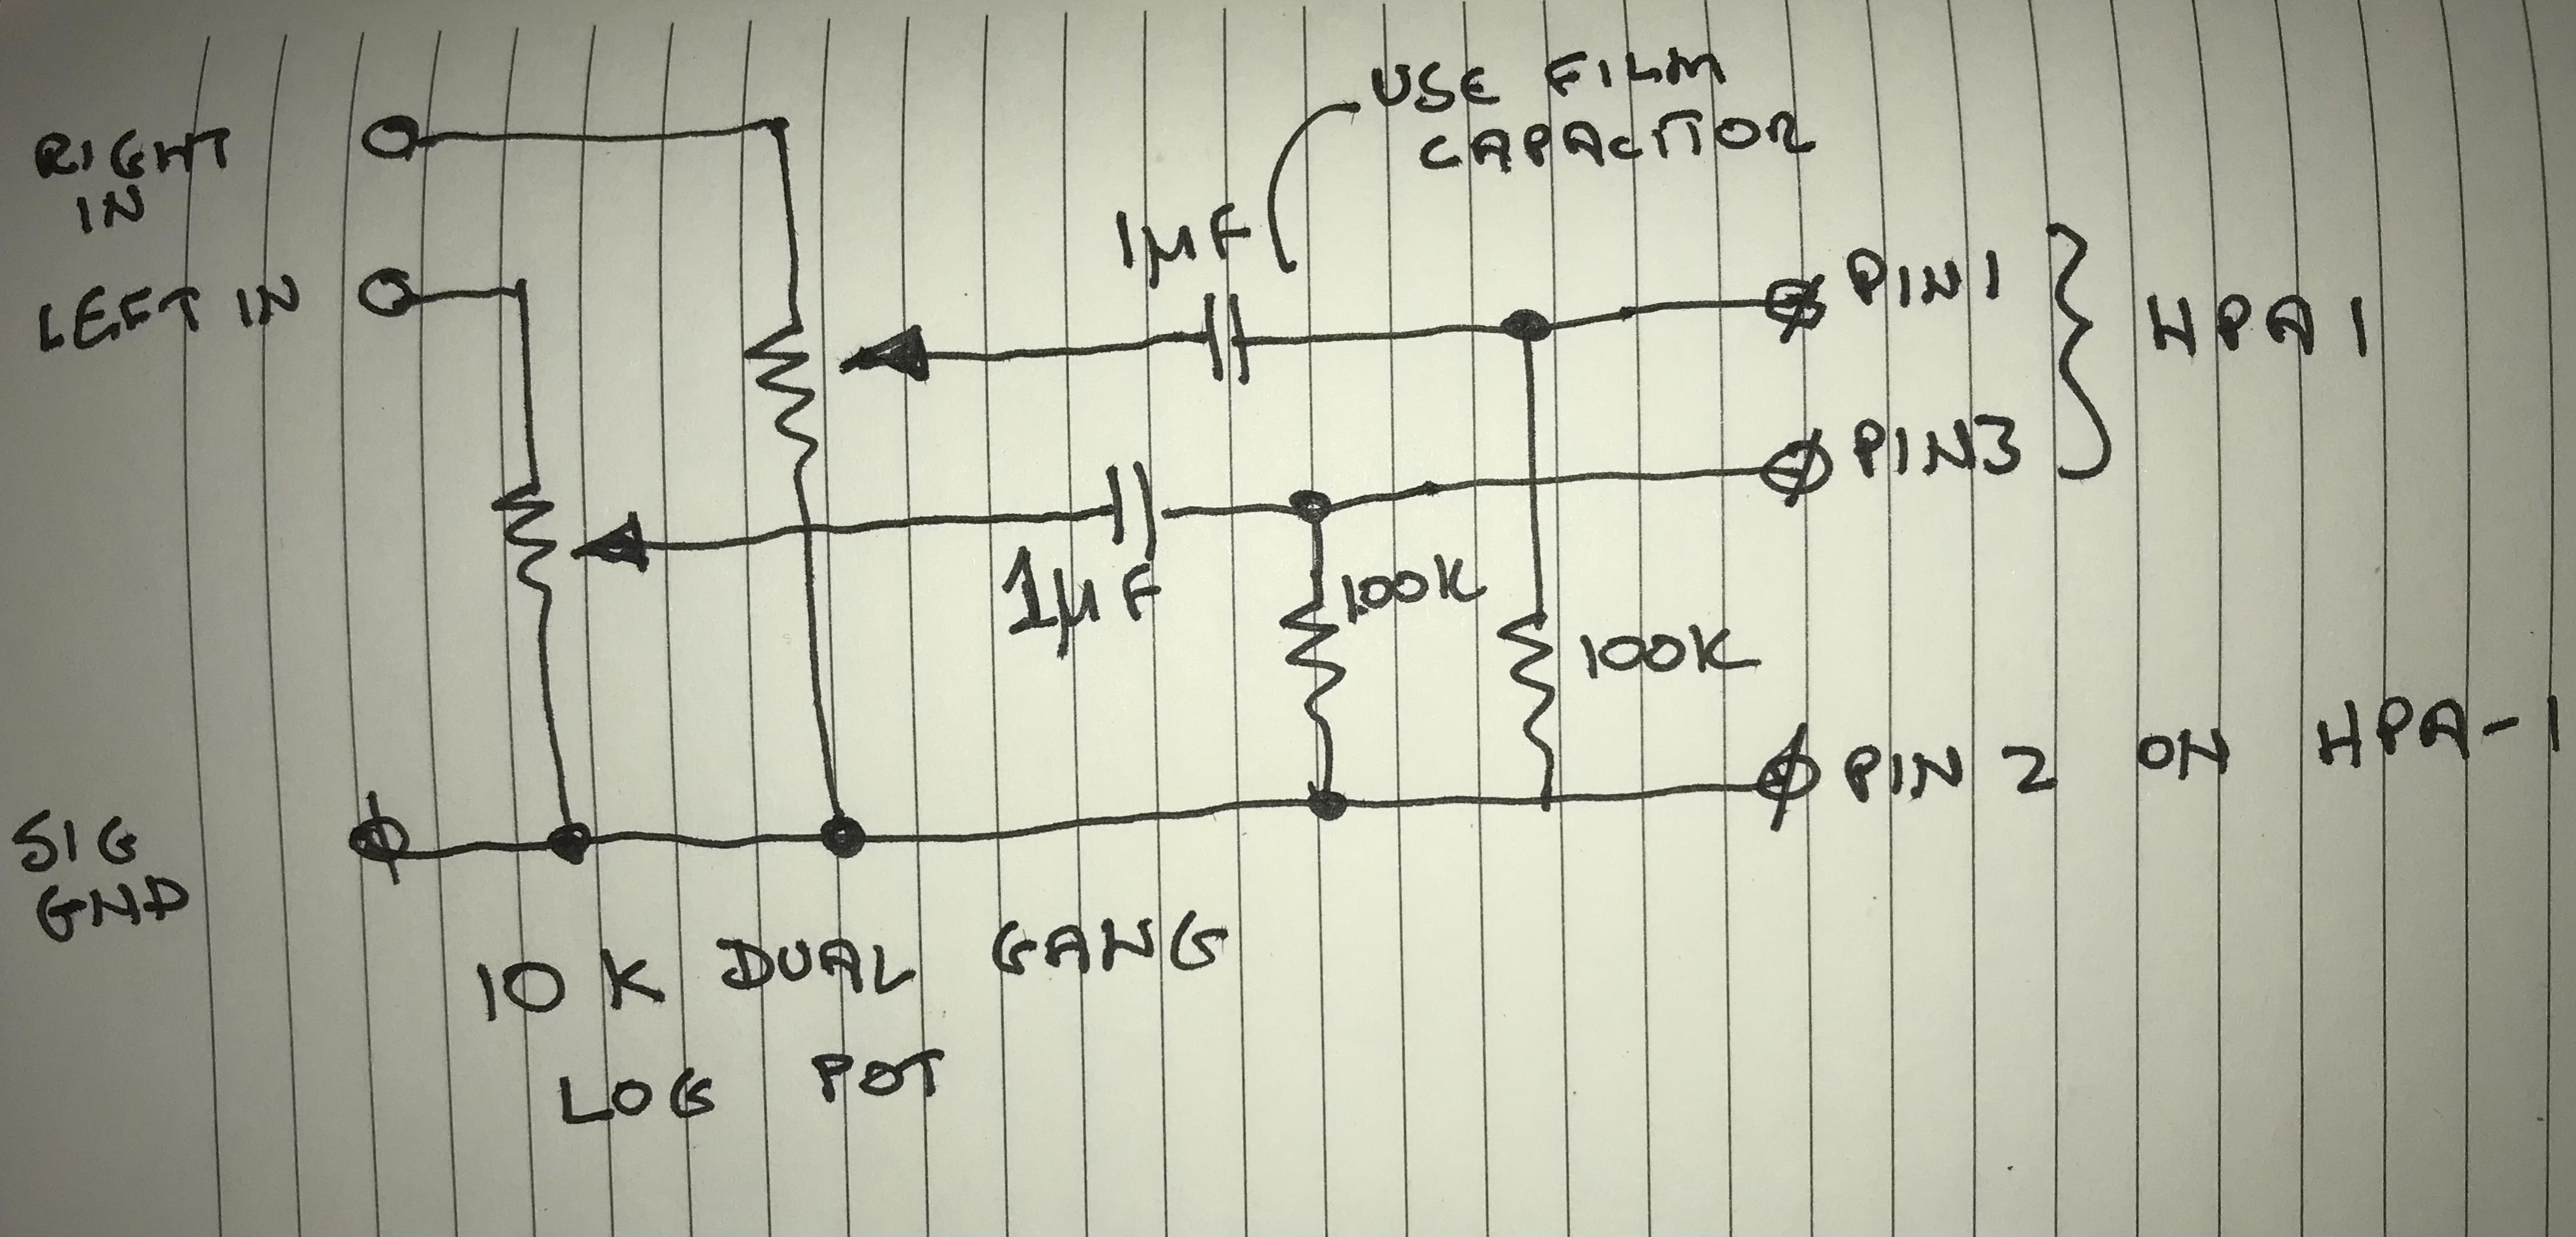 RIGHT
IN
LEFT IN
SIG
GND
USE FILM
CAPACITOR
1µF
1µF
100K
100K
PIN1
PIN3
HPA1
PIN 2 ON HPA-1
10 K DUAL GANG
LOG POT